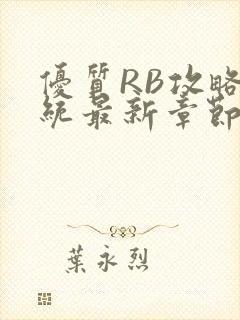 優質RB攻略
統最新章節
葉永烈